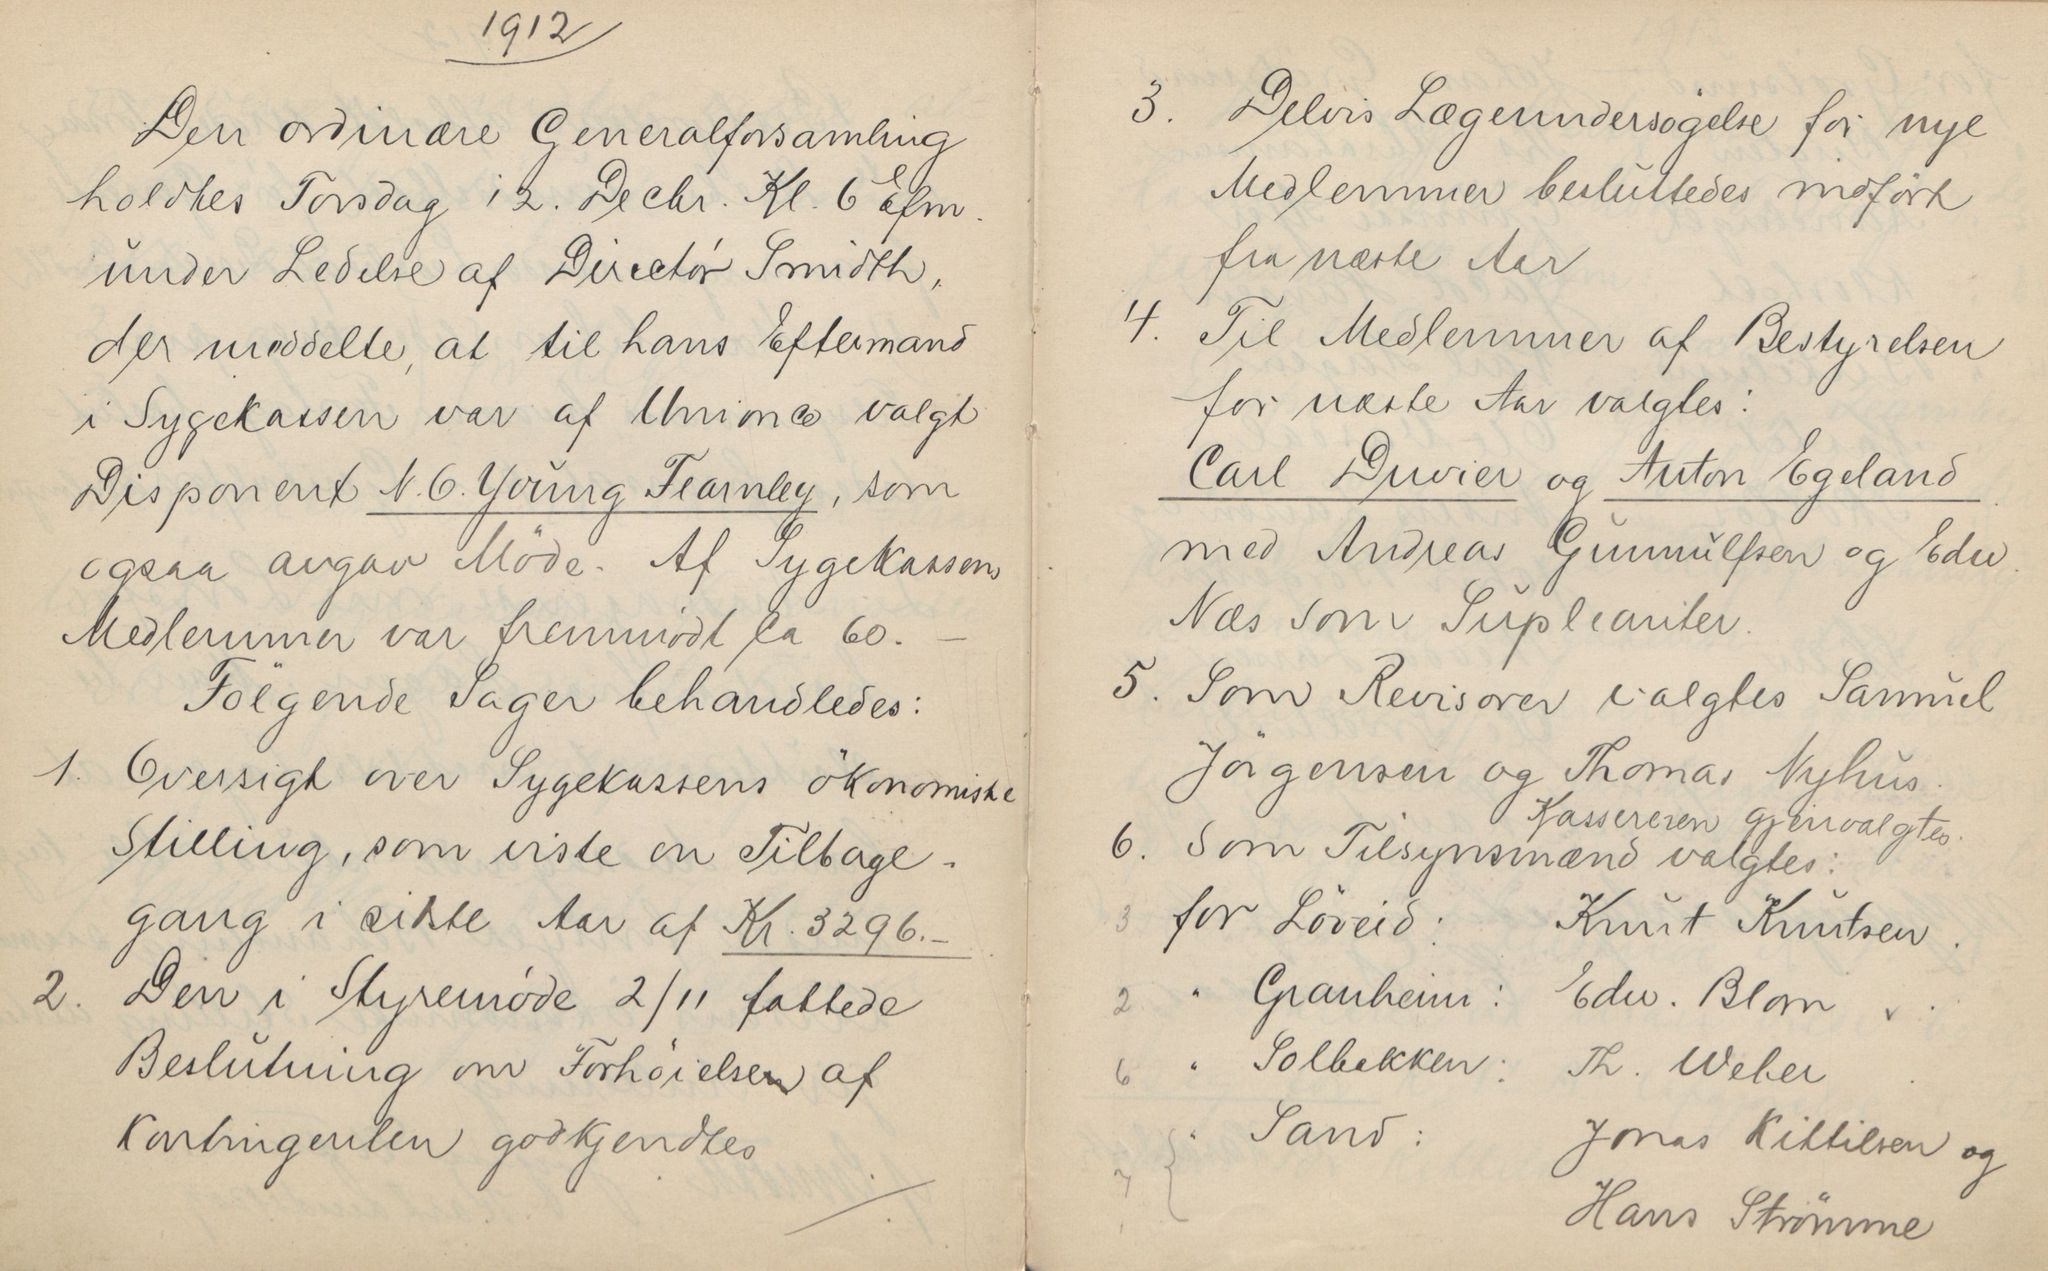 1912
Den ordinære Generalforsamling
holdtes Torsdag 12. Decbr. Kl. 6 Efm.
under Ledelse af Directör Smidth,
der meddelte, at til hans Eftermand
i Sygekassen var af Union Co valgt
Disponent N. O. Young Fearnley, som
ogsaa avgav Möde. Af Sygekassens
Medlemmer var fremmödt ca 60. —
Fölgende Sager behandledes:
1. Oversigt over Sygekassens ökonomiske
Stilling, som viste en Tilbage-
gang i sidste Aar af Kr. 3296.-
2. Den i Styremöde 2/11 fattede
Beslutning om Forhöielsen af
Kontingenten godkjendtes
3. Delvis Lægeundersögelse for nye
Medlemmer besluttedes indfört
fra næste Aar
4. Til Medlemmer af Bestyrelsen
for næste Aar valgtes:
Carl Duvier og Anton Egeland
med Andreas Gunnulfsen og Edw.
Næs som Supleanter.
5. Som Revisorer valgtes Samuel
Jörgensen og Thomas Nyhus.
Kassereren gjenvalgtes.
6. Som Tilsynsmænd valgtes:
3 for Löveid: Knut Knutsen.
2 " Granheim: Edw. Blom
6 " Solbakken: Th. Weber
" Sand: Jonas Kittilsen og
7 { Hans Strömme